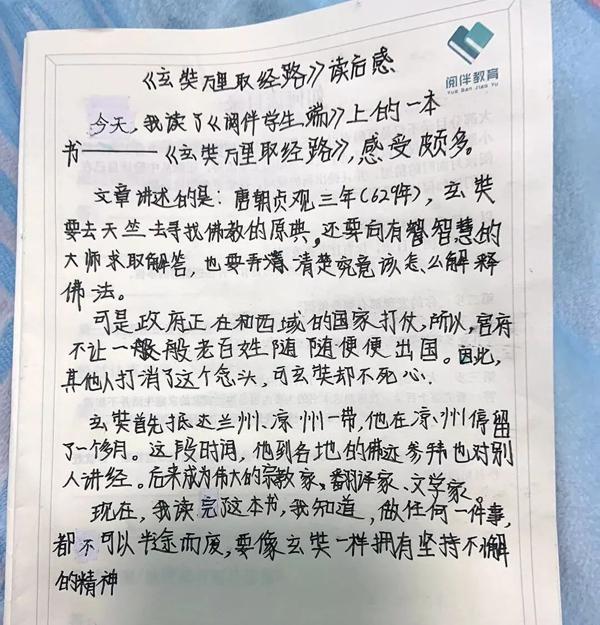 阅伴教育
YUE BAN JIAO YU
《玄奘万里取经路》读后感
今天，我读了《阅伴学生端》上的一本
书——《玄奘万里取经路》，感受颇多。
文章讲述的是：唐朝贞观三年（629年），玄奘
要去天竺去寻找佛教的原典，还要向有智慧的
大师求取解答，也要弄清楚究竟该怎么解释
佛法。
可是政府正在和西域的国家打仗，所以，官府
不让一般般老百姓随随便便出国。因此，
其他人打消了这个念头，可玄奘却不死心.
玄奘首先抵达兰州、凉州一带，他在凉州停留
了一个多月。这段时间，他到各地的佛迹参拜也对别
人讲经。后来成为伟大的宗教家、翻译家、文学家。
现在，我读完这本书，我知道，做任何一件事，
都不可以半途而废，要像玄奘一样拥有坚持不懈
的精神